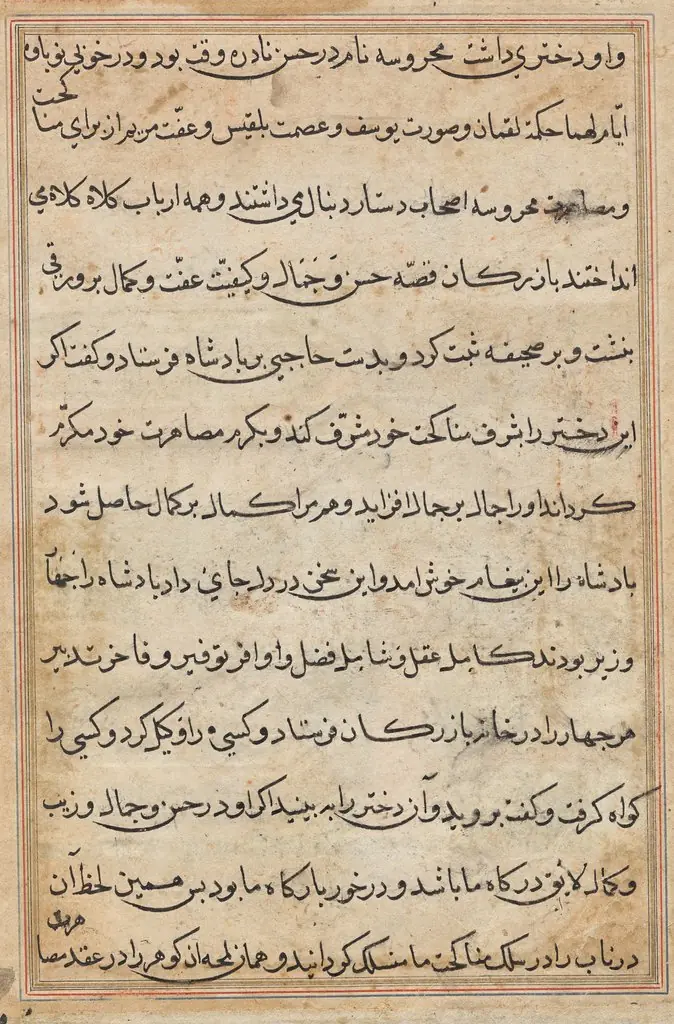 واو دختری داشت محروسه نام در حسن نادره وقت بود و در خوبی نوباوه
ایّام لهما حکمة لقمان وصورت یوسف وعصمت بلقیس وعفّت مریم از برای مناکحت
ومصاهرت محروسه اصحاب دستار دنبال می داشتند وهمه ارباب کلاه کلاه می
انداختند بازرکان قصّه حسن وَجَمَال وکیفیّت عفّت وکمال بر ورقی
بنشت وبر صحیفه ثبت کرد و بدست حاجبی بر بادشاه فرستاد و کفت اکر
این دختر را بشرف مناکحت خود مشرّف کند و بکرم مصاهرت خود مکرّم
کرداند اورا جمال بر جمال افزاید وهم مرا کمال بر کمال حاصل شود
بادشاه را این پیغام خوش امد واین سخن در دل جای داد بادشاه را جهار
وزیر بودند کامل عقل وشامل فضل وافر توفیر وفاخر تدبیر
هر جهار را در خانه بازرکان فرستاد وکسی را وکیل کرد وکسی را
کواه کرفت وکفت بروید وآن دختر را به بینید اکر او در حسن وجمال وزیب
وکمال لایق درکاه ما باشد ودر خور بارکاه ما بود بس همین لحظ آن
در ناب را در سلک مناکحت ما منسلک کردانید وهمان لمحه ان کوهر را در عقد مصاهرت